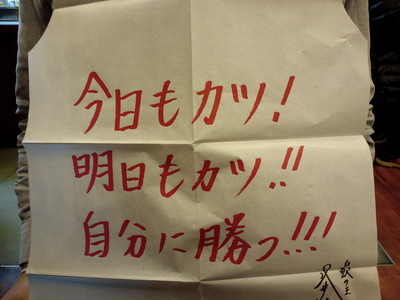 今日もカツ!
明日もカツ!!
自分に勝つ!!!